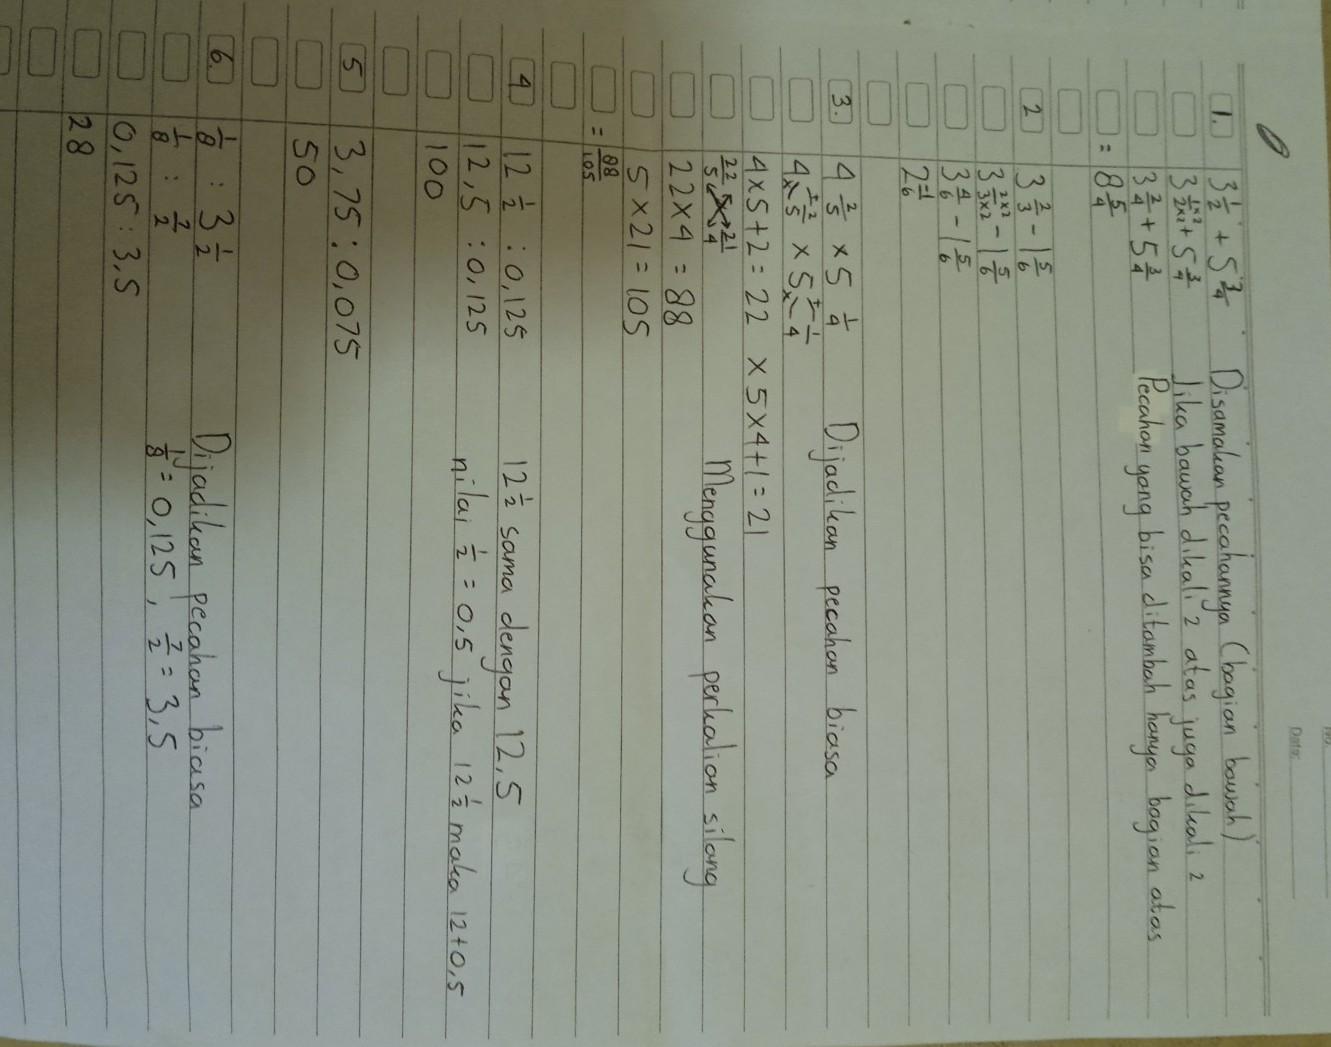 No
Date:
1. 3 1/2 + 5 3/4 Disamakan pecahannya (bagian bawah)
3 1×2/2×2 + 5 3/4 Jika bawah dikali 2 atas juga dikali 2
3 2/4 + 5 3/4 Pecahan yang bisa ditambah hanya bagian atas
= 8 5/4
2 3 2/3 - 1 5/6
3 2×2/3×2 - 1 5/6
3 4/6 - 1 5/6
2 -1/6
3. 4 2/5 × 5 1/4 Dijadikan pecahan biasa
4 +2/×5 × 5 +1/×4
4×5+2=22 × 5×4+1=21
22/5 × 21/4 Menggunakan perkalian silang
22×4 = 88
5×21=105
= 88/105
4 12 1/2 : 0,125 12 1/2 sama dengan 12,5
12,5 : 0,125 nilai 1/2 = 0,5 jika 12 1/2 maka 12+0,5
100
5 3,75 : 0,075
50
6. 1/8 : 3 1/2 Dijadikan pecahan biasa
1/8 : 7/2 1/8 = 0,125, 7/2 = 3,5
0,125 : 3,5
28